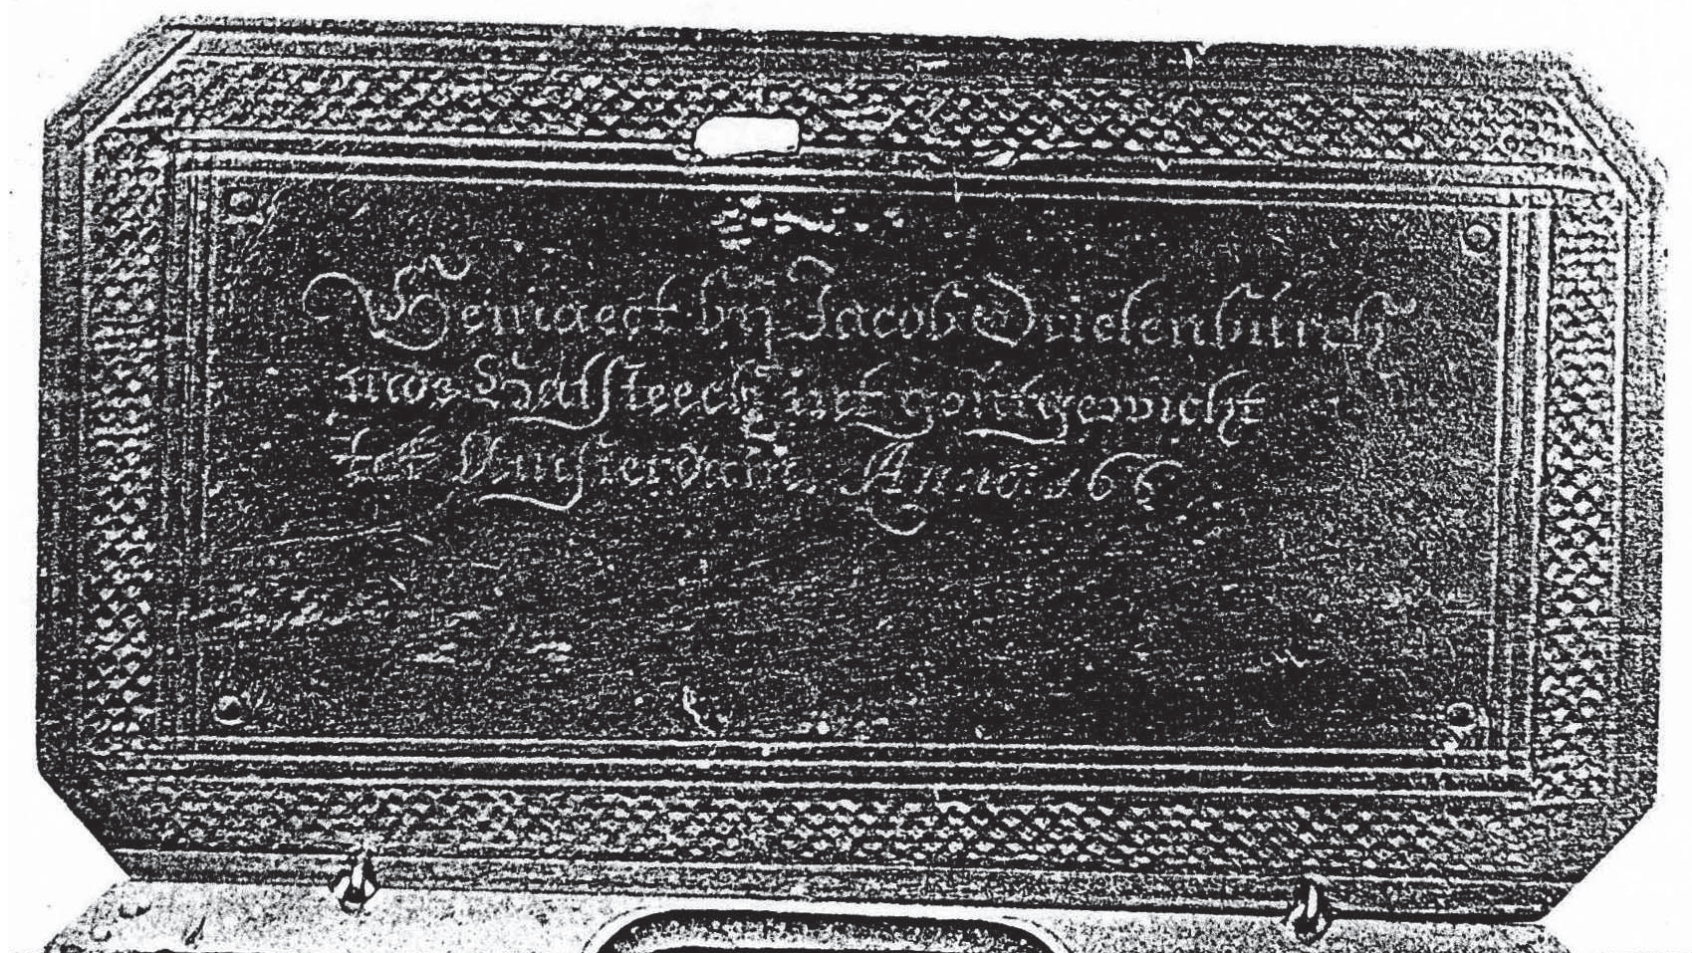 Gemaect bij Jacob Oudenburch
inde Halsteech int goutgewicht
tot Amsterdam, Anno: 166